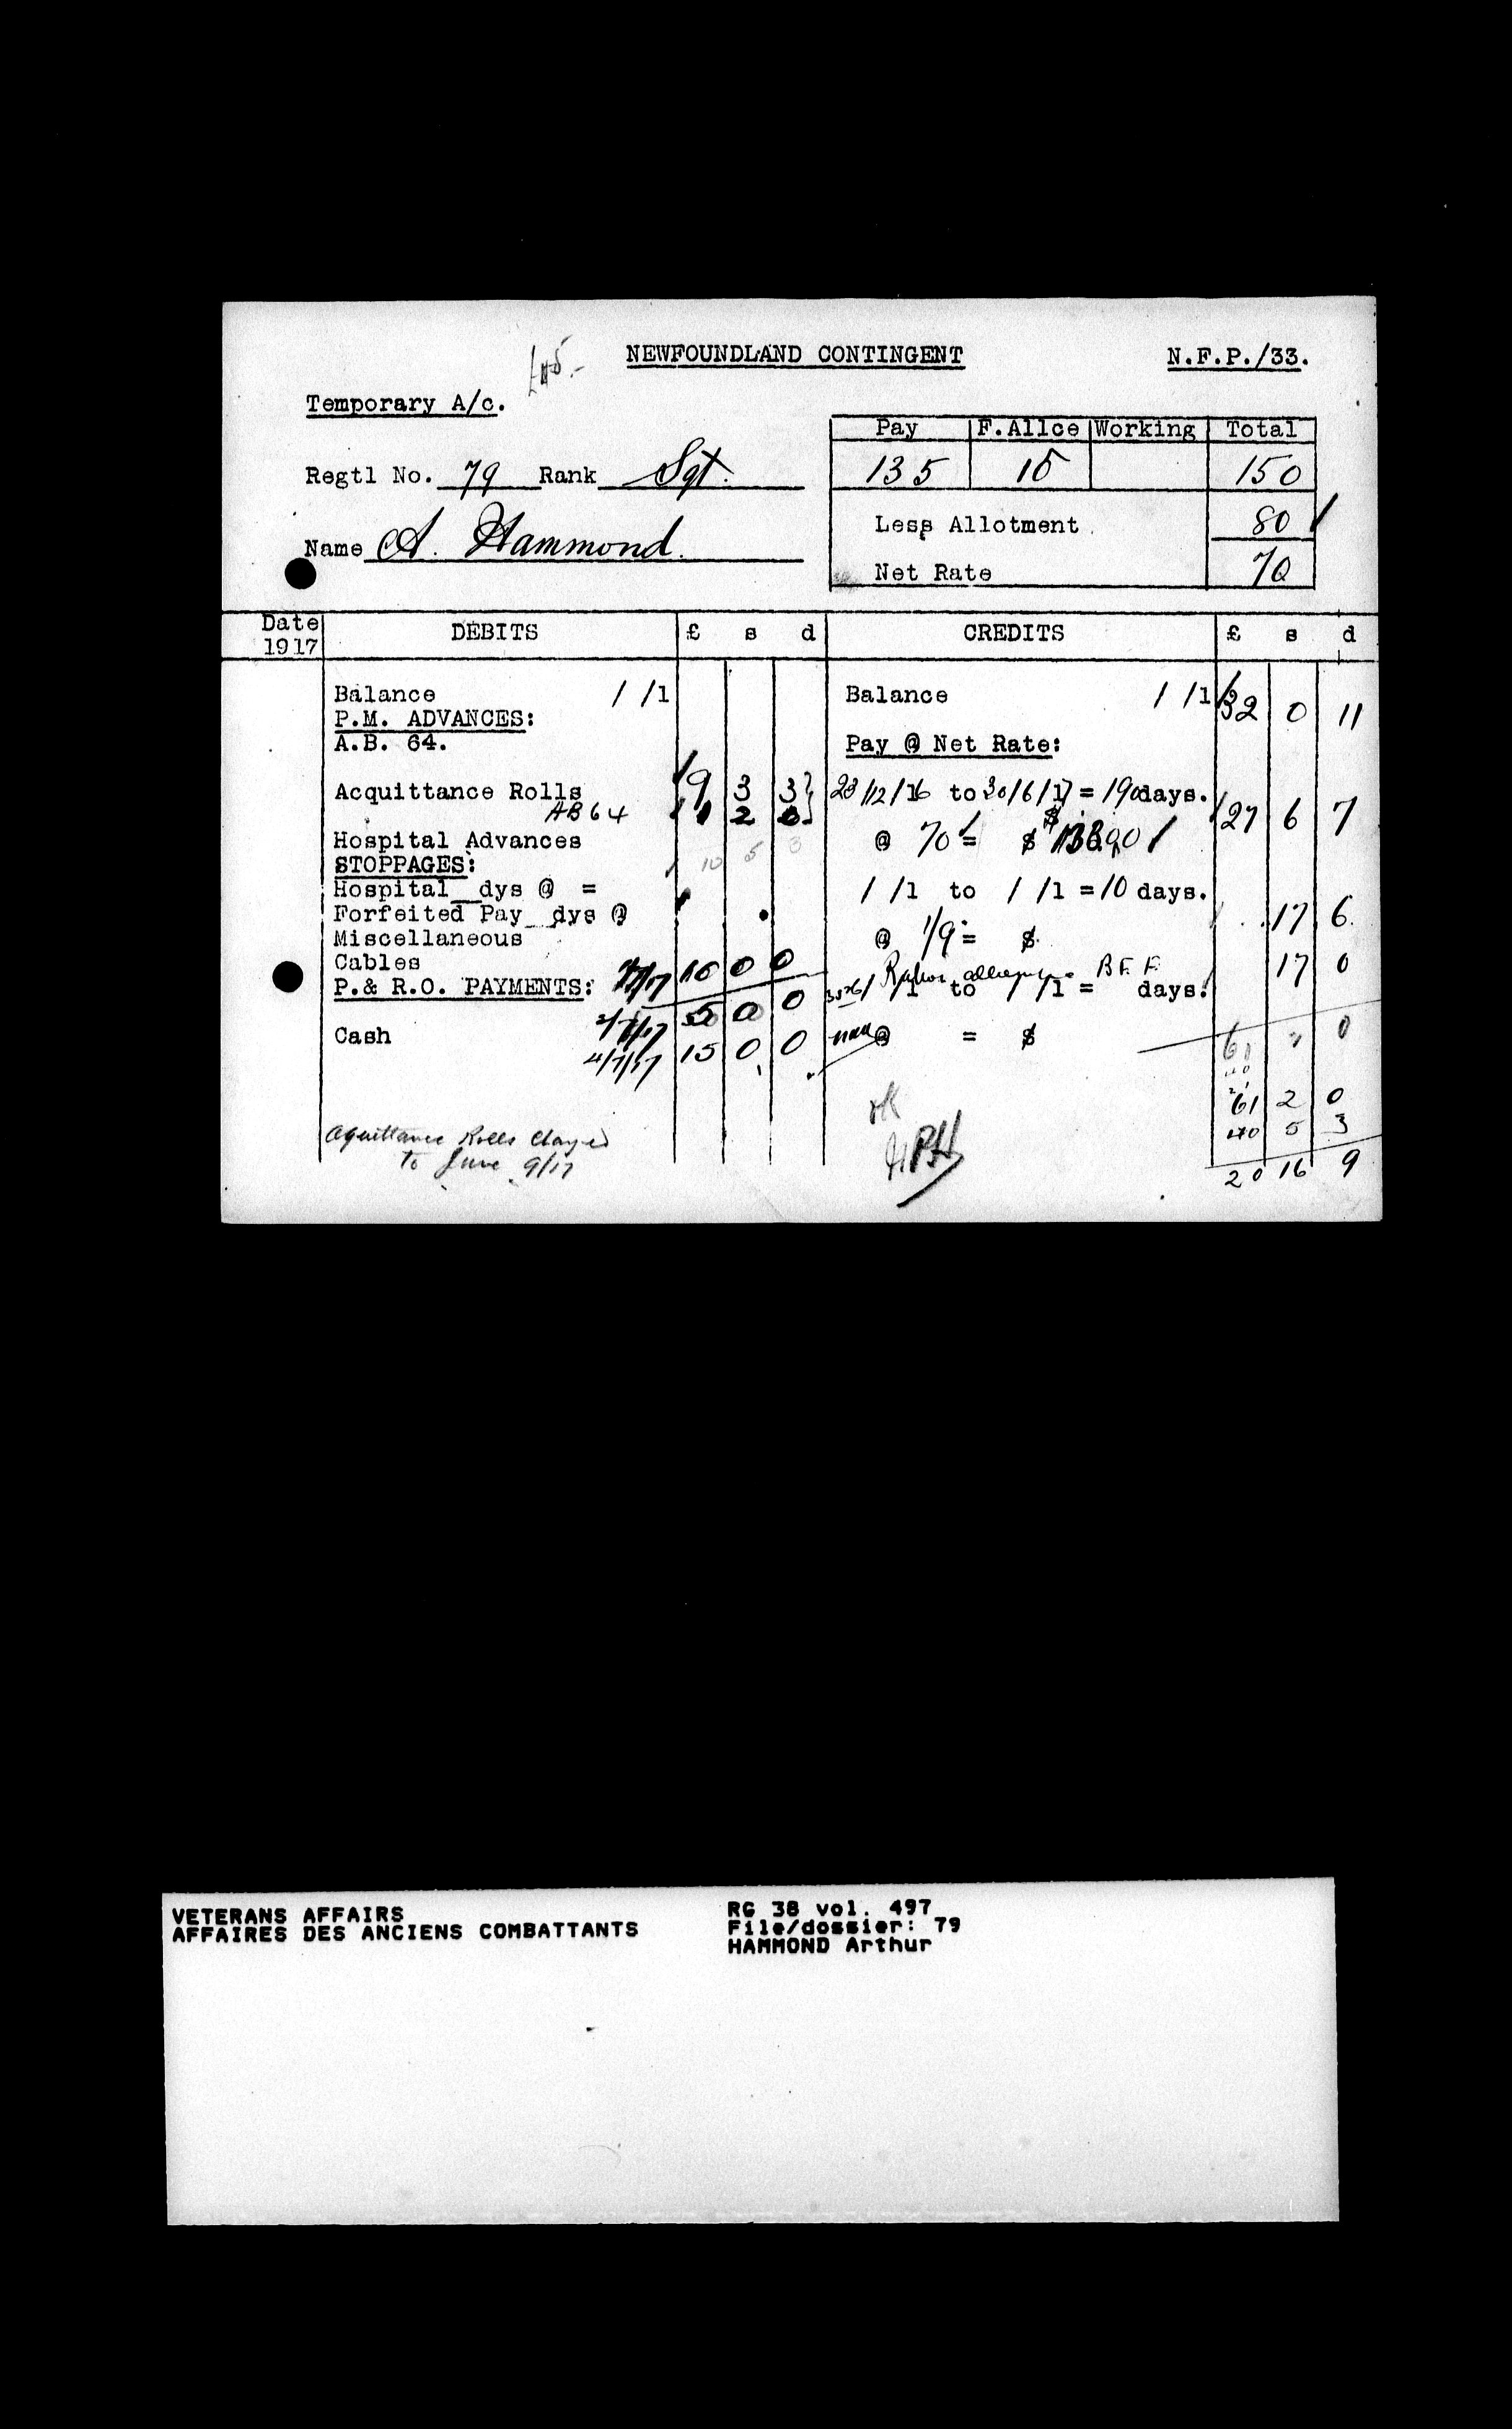 NEWFOUNDLAND CONTINGENT N.F.P./33.
Temporary A/c.
Pay F.Allce Working Total
135 15 150
Regtl No. 79 Rank Sgt.
Less Allotment 80
Name A. Hammond.
Net Rate 70
Date 1917 DEBITS £ s d CREDITS £ s d
Balance / /1 Balance / /1 32 0 11
P.M. ADVANCES:
A.B. 64. Pay @ Net Rate:
Acquittance Rolls 9 3 3 23/12/16 to 30/6/17 = 190 days.
AB64 1 2 0 27 6 7
Hospital Advances @ 70 = $
STOPPAGES: 10 5 3
Hospital__dys @ = / /1 to / /1 = 10 days.
Forfeited Pay__dys @ 17 6
Miscellaneous @ 1/9 = $
Cables 10 0 0 BEF 17 0
P.& R.O. PAYMENTS: / /1 to / /1 = days.
2/7/17 5 0 0
Cash @ = $
4/7/17 15 0 0
61 2 0
Aquittance Rolls charged 40 5 3
to June 9/17
20 16 9
VETERANS AFFAIRS RG 38 vol. 497
AFFAIRES DES ANCIENS COMBATTANTS File/dossier: 79
HAMMOND Arthur